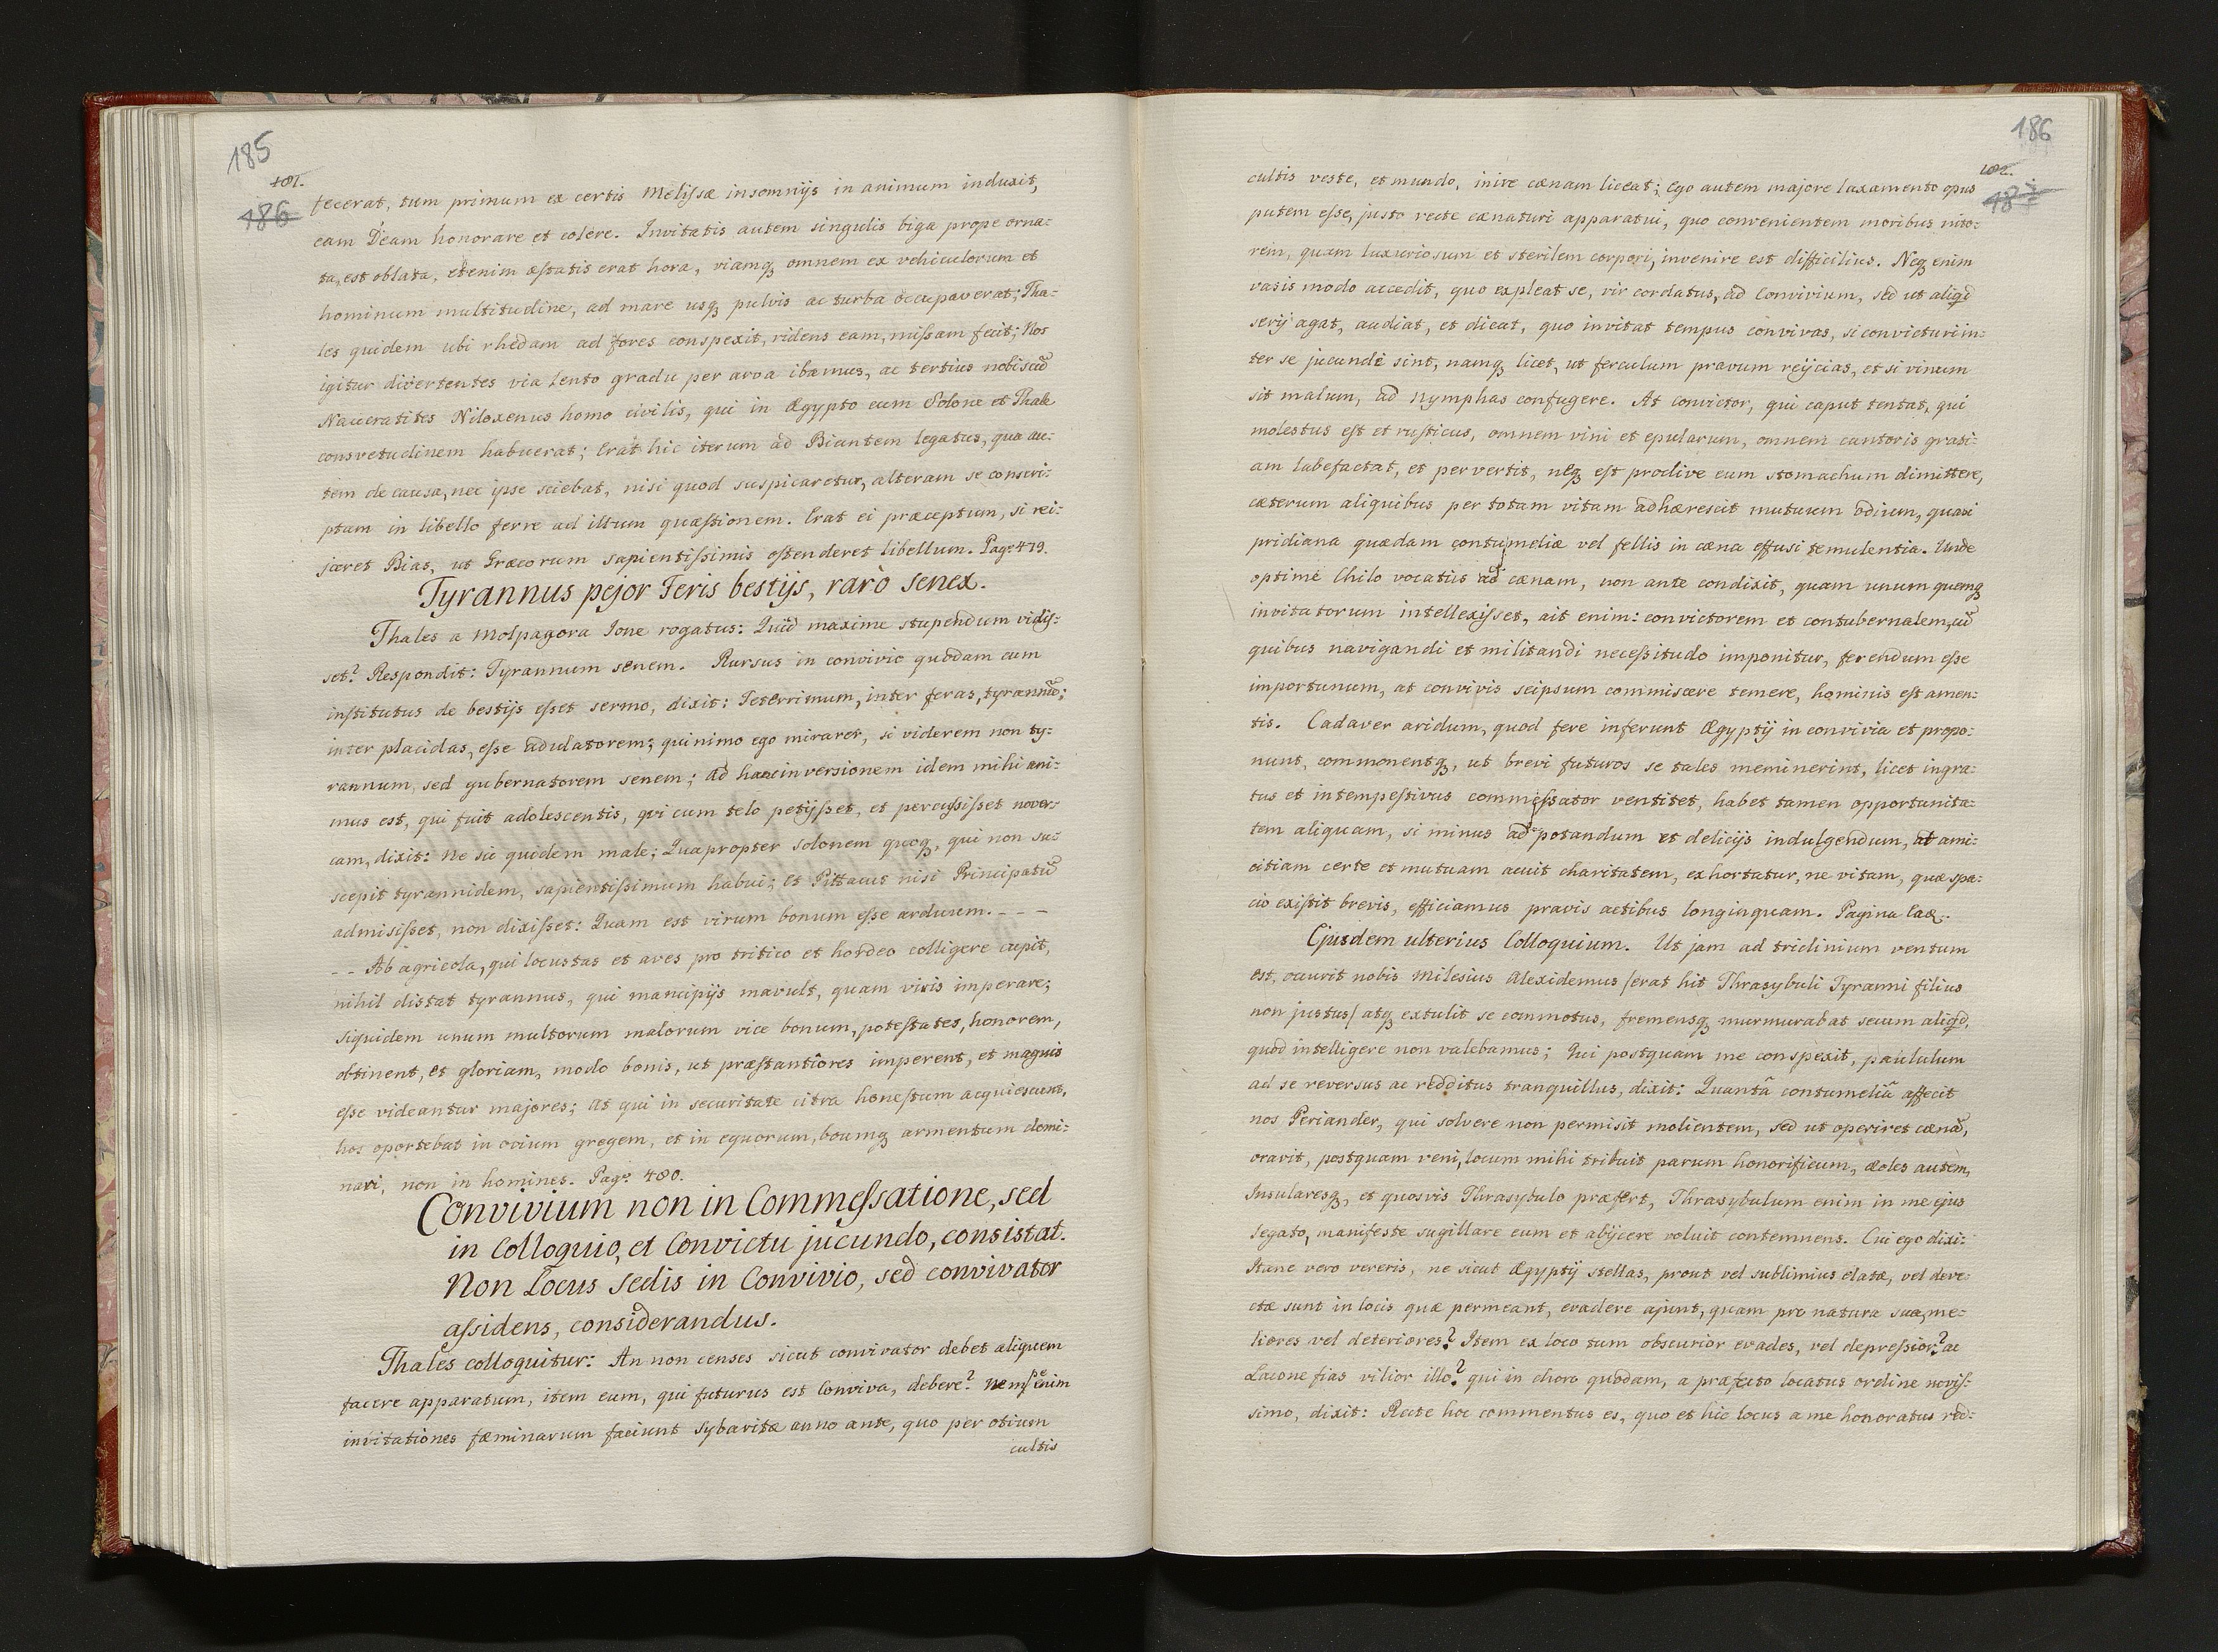 185
101.
186
fecerat, tum primum ex certis Melissæ insomnijs in animum induxit,
eam Deam honorare et colere. Invitatis autem singulis biga prope orna-
ta, est oblata, etenim æstatis erat hora, viamq; omnem ex vehiculorum et
hominum multitudine, ad mare usq; pulvis ac turba occupaverat; Tha-
les quidem ubi rhedam ad fores conspexit, ridens eam, missam fecit; Nos
igitur divertentes via lento gradu per arva ibamus, ac tertius nobiscũ
Naucratites Niloxenus homo civilis, qui in Ægypto cum Solone et Thale
consvetudinem habuerat; Erat hic iterum ad Biantem legatus, qua au-
tem de causa, nec ipse sciebat, nisi quod suspicaretur, alteram se conscri-
ptam in libello ferre ad illum quæstionem. Erat ei præceptum, si rei-
jceret Bias, ut Græcorum sapientissimis ostenderet libellum. Pag: 479.
Tyrannus pejor Feris bestijs, rarò senex.
Thales a Molpagora Ione rogatus: Quid maxime stupendum vidis-
set? Respondit: Tyrannum senem. Rursus in convivio quodam cum
institutus de bestijs esset sermo, dixit: Teterrimum, inter feras, tyrannũ;
inter placidas, esse adulatorem; quinimo ego mirarer, si viderem non ty-
rannum, sed gubernatorem senem; ad hanc inversionem idem mihi ani-
mus est, qui fuit adolescentis, qvi cum telo petijsset, et percussisset nover-
cam, dixit: Ne sic quidem male; Quapropter Solonem quoq, qui non su-
scepit tyrannidem, sapientissimum habui; Et Pittacus nisi Principatũ
admisisset, non dixisset: Quam est virum bonum esse arduum. - - -
- - Ab agricola, qui locustas et aves pro tritico et hordeo colligere cupit,
nihil distat tyrannus, qui mancipijs mavult, quam viris imperare;
siquidem unum multorum malorum vice bonum, potestates, honorem,
obtinent, et gloriam, modo bonis, ut præstantiores imperent, et magnis
esse videantur majores; at qui in securitate citra honestum acquiescunt,
hos oportebat in ovium gregem, et in equorum, boumq; armentum domi-
nari, non in homines. Pag: 480.
Convivium non in Commessatione, sed
in Colloquio, et Convictu jucundo, consistat.
Non Locus sedis in Convivio, sed convivator
assidens, considerandus.
Thales colloquitur: An non censes sicut convivator debet aliquem
facere apparatum, item eum, qui futurus est Conviva, debere? Nempe enim
invitationes fæminarum faciunt Sybaritæ anno ante, quo per otium
cultis
186
102.
187
cultis veste, et mundo, inire cænam liceat; Ego autem majore laxamento opus
putem esse, justo recte cænaturi apparatui, quo convenientem moribus nito-
rem, quam luxuriosum et sterilem corpori, invenire est difficilius. Neq; enim
vasis modo accedit, quo expleat se, vir cordatus, ad Convivium, sed ut aliqd
serij agat, audiat, et dicat, quo invitat tempus convivas, si convicturi in-
ter se jucunde sint, namq; licet, ut ferculum pravum rejicias, et si vinum
sit malum, ad Nymphas confugere. At convictor, qui caput tentat, qui
molestus est et rusticus, omnem vini et epularum, omnem cantoris grati-
am labefactat, et pervertit, neq; est proclive eum stomachum dimittere,
cæterum aliquibus per totam vitam adhærescit mutuum odium, quasi
pridiana quædam contumeliæ vel fellis in cæna effusi temulentia. Unde
optime Chilo vocatus ad cænam, non ante condixit, quam unum quemq;
invitatorum intellexisset, ait enim: convictorem et contubernalem, cũ
quibus navigandi et militandi necessitudo imponitur, ferendum esse
importunum, at convivis seipsum commiscere temere, hominis est amen-
tis. Cadaver aridum, quod fere inferunt Ægyptij in convivia et propo-
nunt, commonentq, ut brevi futuros se tales meminerint, licet ingra-
tus et intempestivus commessator ventitet, habet tamen opportunita-
tem aliquam, si minus ad potandum et delicijs indulgendum, at ami-
citiam certe et mutuam acuit charitatem, exhortatur, ne vitam, quæ spa-
cio existit brevis, efficiamus pravis actibus longinquam. Pagina Ead.
Ejusdem ulterius Colloquium. Ut jam ad triclinium ventum
est, occurit nobis Milesius Alexidemus /erat hit Thrasybuli Tyranni filius
non justus/ atq; extulit se commotus, fremensq; murmurabat secum aliqd,
quod intelligere non valebamus; Qui postquam me conspexit, paululum
ad se reversus ac redditus tranquillus, dixit: Quantâ contumeliâ affecit
nos Periander, qui solvere non permisit molientem, sed ut operiret cænã,
oravit, postquam veni, locum mihi tribuit parum honorificum, Æoles autem,
Insularesq;, et quosvis Thrasybulo præfert, Thrasybulum enim in me ejus
legato, manifeste sugillare eum et abijcere voluit contemnens. Cui ego dixi:
Itane vero vereris, ne sicut Ægyptij stellas, prout vel sublimius elatæ, vel deve-
ctæ sunt in locis quæ permeant, evadere ajunt, quam pro natura sua, me-
liores vel deteriores? Item ex loco tum obscurior evades, vel depressior? ac
Lacone fias vilior illo? qui in choro quodam, a præfecto locatus ordine novis-
simo, dixit: Recte hoc commentus es, quo et hic locus a me honoratus red-